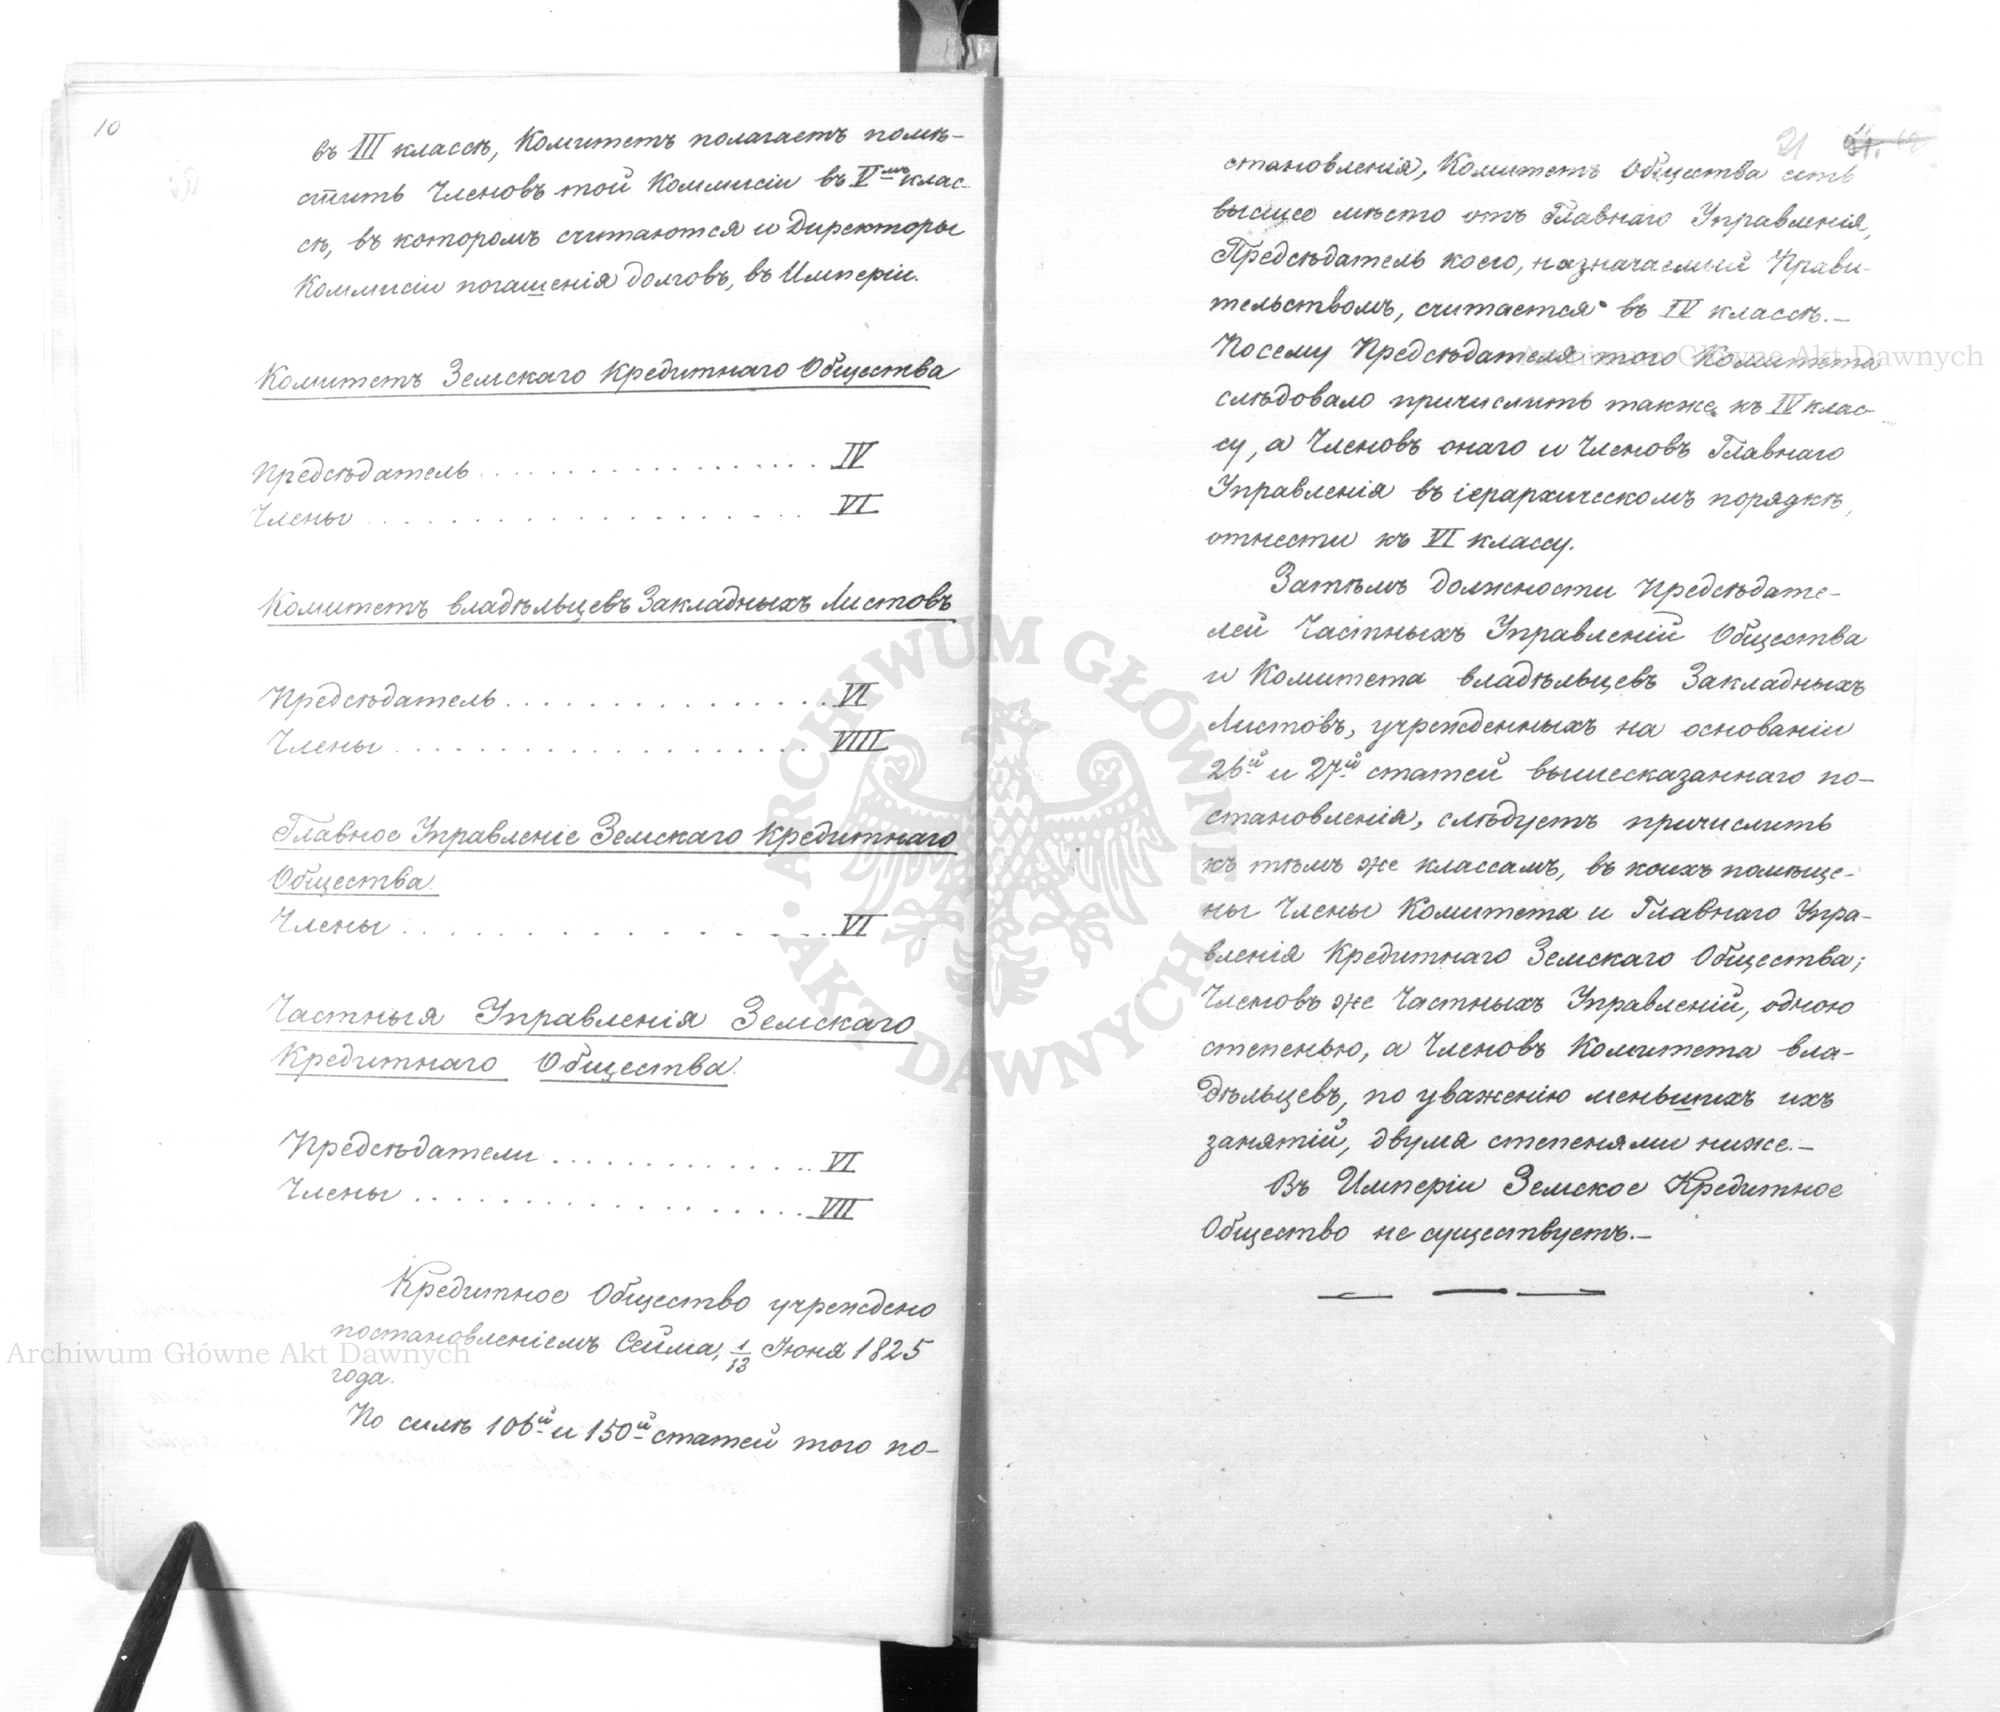 10
въ III классѣ, Комитетъ полагаетъ помѣ-
стить Членовъ той Коммисіи въ V мъ клас-
сѣ, въ которомъ считаются и Директоры
Коммисіи погашенія долговъ, въ Имперіи.
Комитетъ Земскаго Кредитнаго Общества
Предсѣдатель . . . . . . . . . . . . . . . . . IV
Члены . . . . . . . . . . . . . . . . . . . . VI
Комитетъ владѣльцевъ Закладныхъ Листовъ
Предсѣдатель . . . . . . . . . . . . . . . . VI
Члены . . . . . . . . . . . . . . . . . . . . VIII
Главное Управленіе Земскаго Кредитнаго
Общества.
Члены . . . . . . . . . . . . . . . . . . . . VI
Частныя Управленія Земскаго
Кредитнаго Общества.
Предсѣдатели . . . . . . . . . . . . . VI
Члены . . . . . . . . . . . . . . . . . . . VII
Кредитное Общество учреждено
постановленіемъ Сейма, 1/13 Іюня 1825
года.
По силѣ 106й и 150й статей того по-
21
становленія, Комитетъ Общества есть
высшее мѣсто отъ Главнаго Управленія,
Предсѣдатель коего, назначаемый Прави-
тельствомъ, считается въ IV классѣ.-
Посему Предсѣдателя того Комитета
слѣдовало причислить также къ IV клас-
су, а Членовъ онаго и Членовъ Главнаго
Управленія въ іерархическомъ порядкѣ,
отнести къ VI классу.
Затѣмъ должности Предсѣдате-
лей Частныхъ Управленій Общества
и Комитета владѣльцевъ Закладныхъ
Листовъ, учрежденныхъ на основаніи
26й и 27й статей вышесказаннаго по-
становленія, слѣдуетъ причислить
къ тѣмъ же классамъ, въ коихъ помѣще-
ны Члены Комитета и Главнаго Упра-
вленія Кредитнаго Земскаго Общества;
Членовъ же Частныхъ Управленій, одною
степенью, а Членовъ Комитета вла-
дѣльцевъ, по уваженію меньшихъ ихъ
занятій, двумя степенями ниже.-
Въ Имперіи Земское Кредитное
Общество не существуетъ.-
Archiwum Główne Akt Dawnych
Archiwum Główne Akt Dawnych
ARCHIWUM GŁÓWNE AKT DAWNYCH